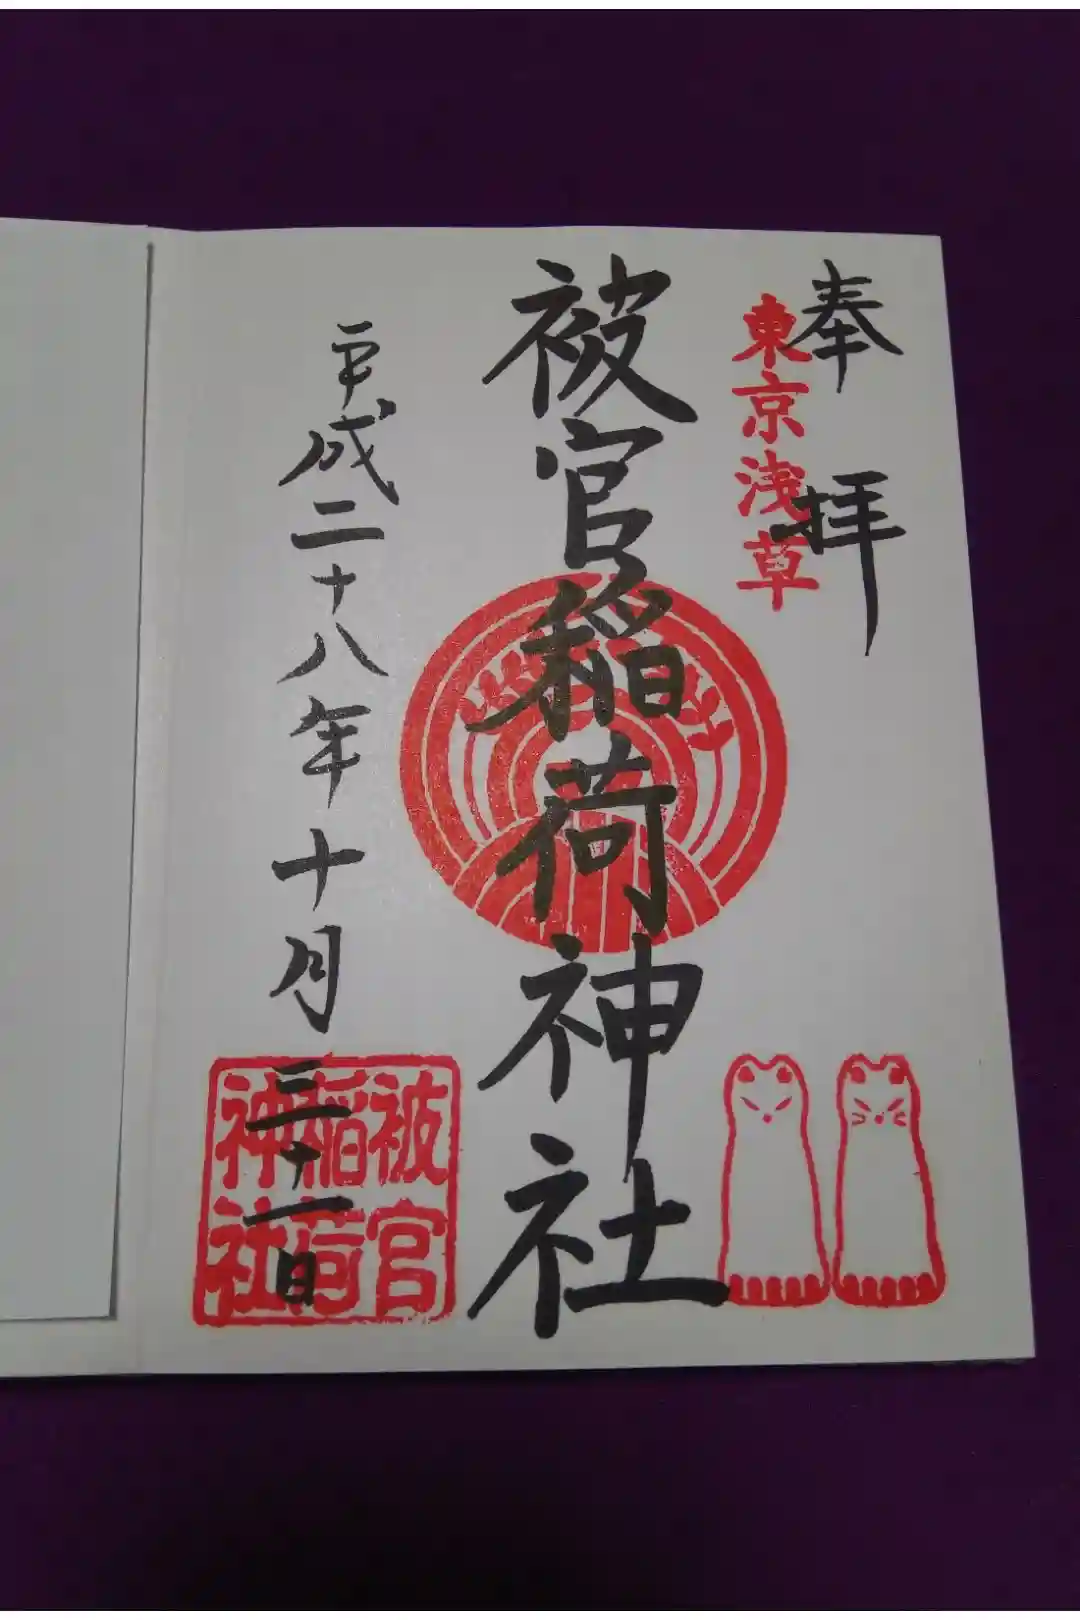 奉拝
東京浅草
被官稲荷神社
平成二十八年十月三十一日
被官
稲荷
神社